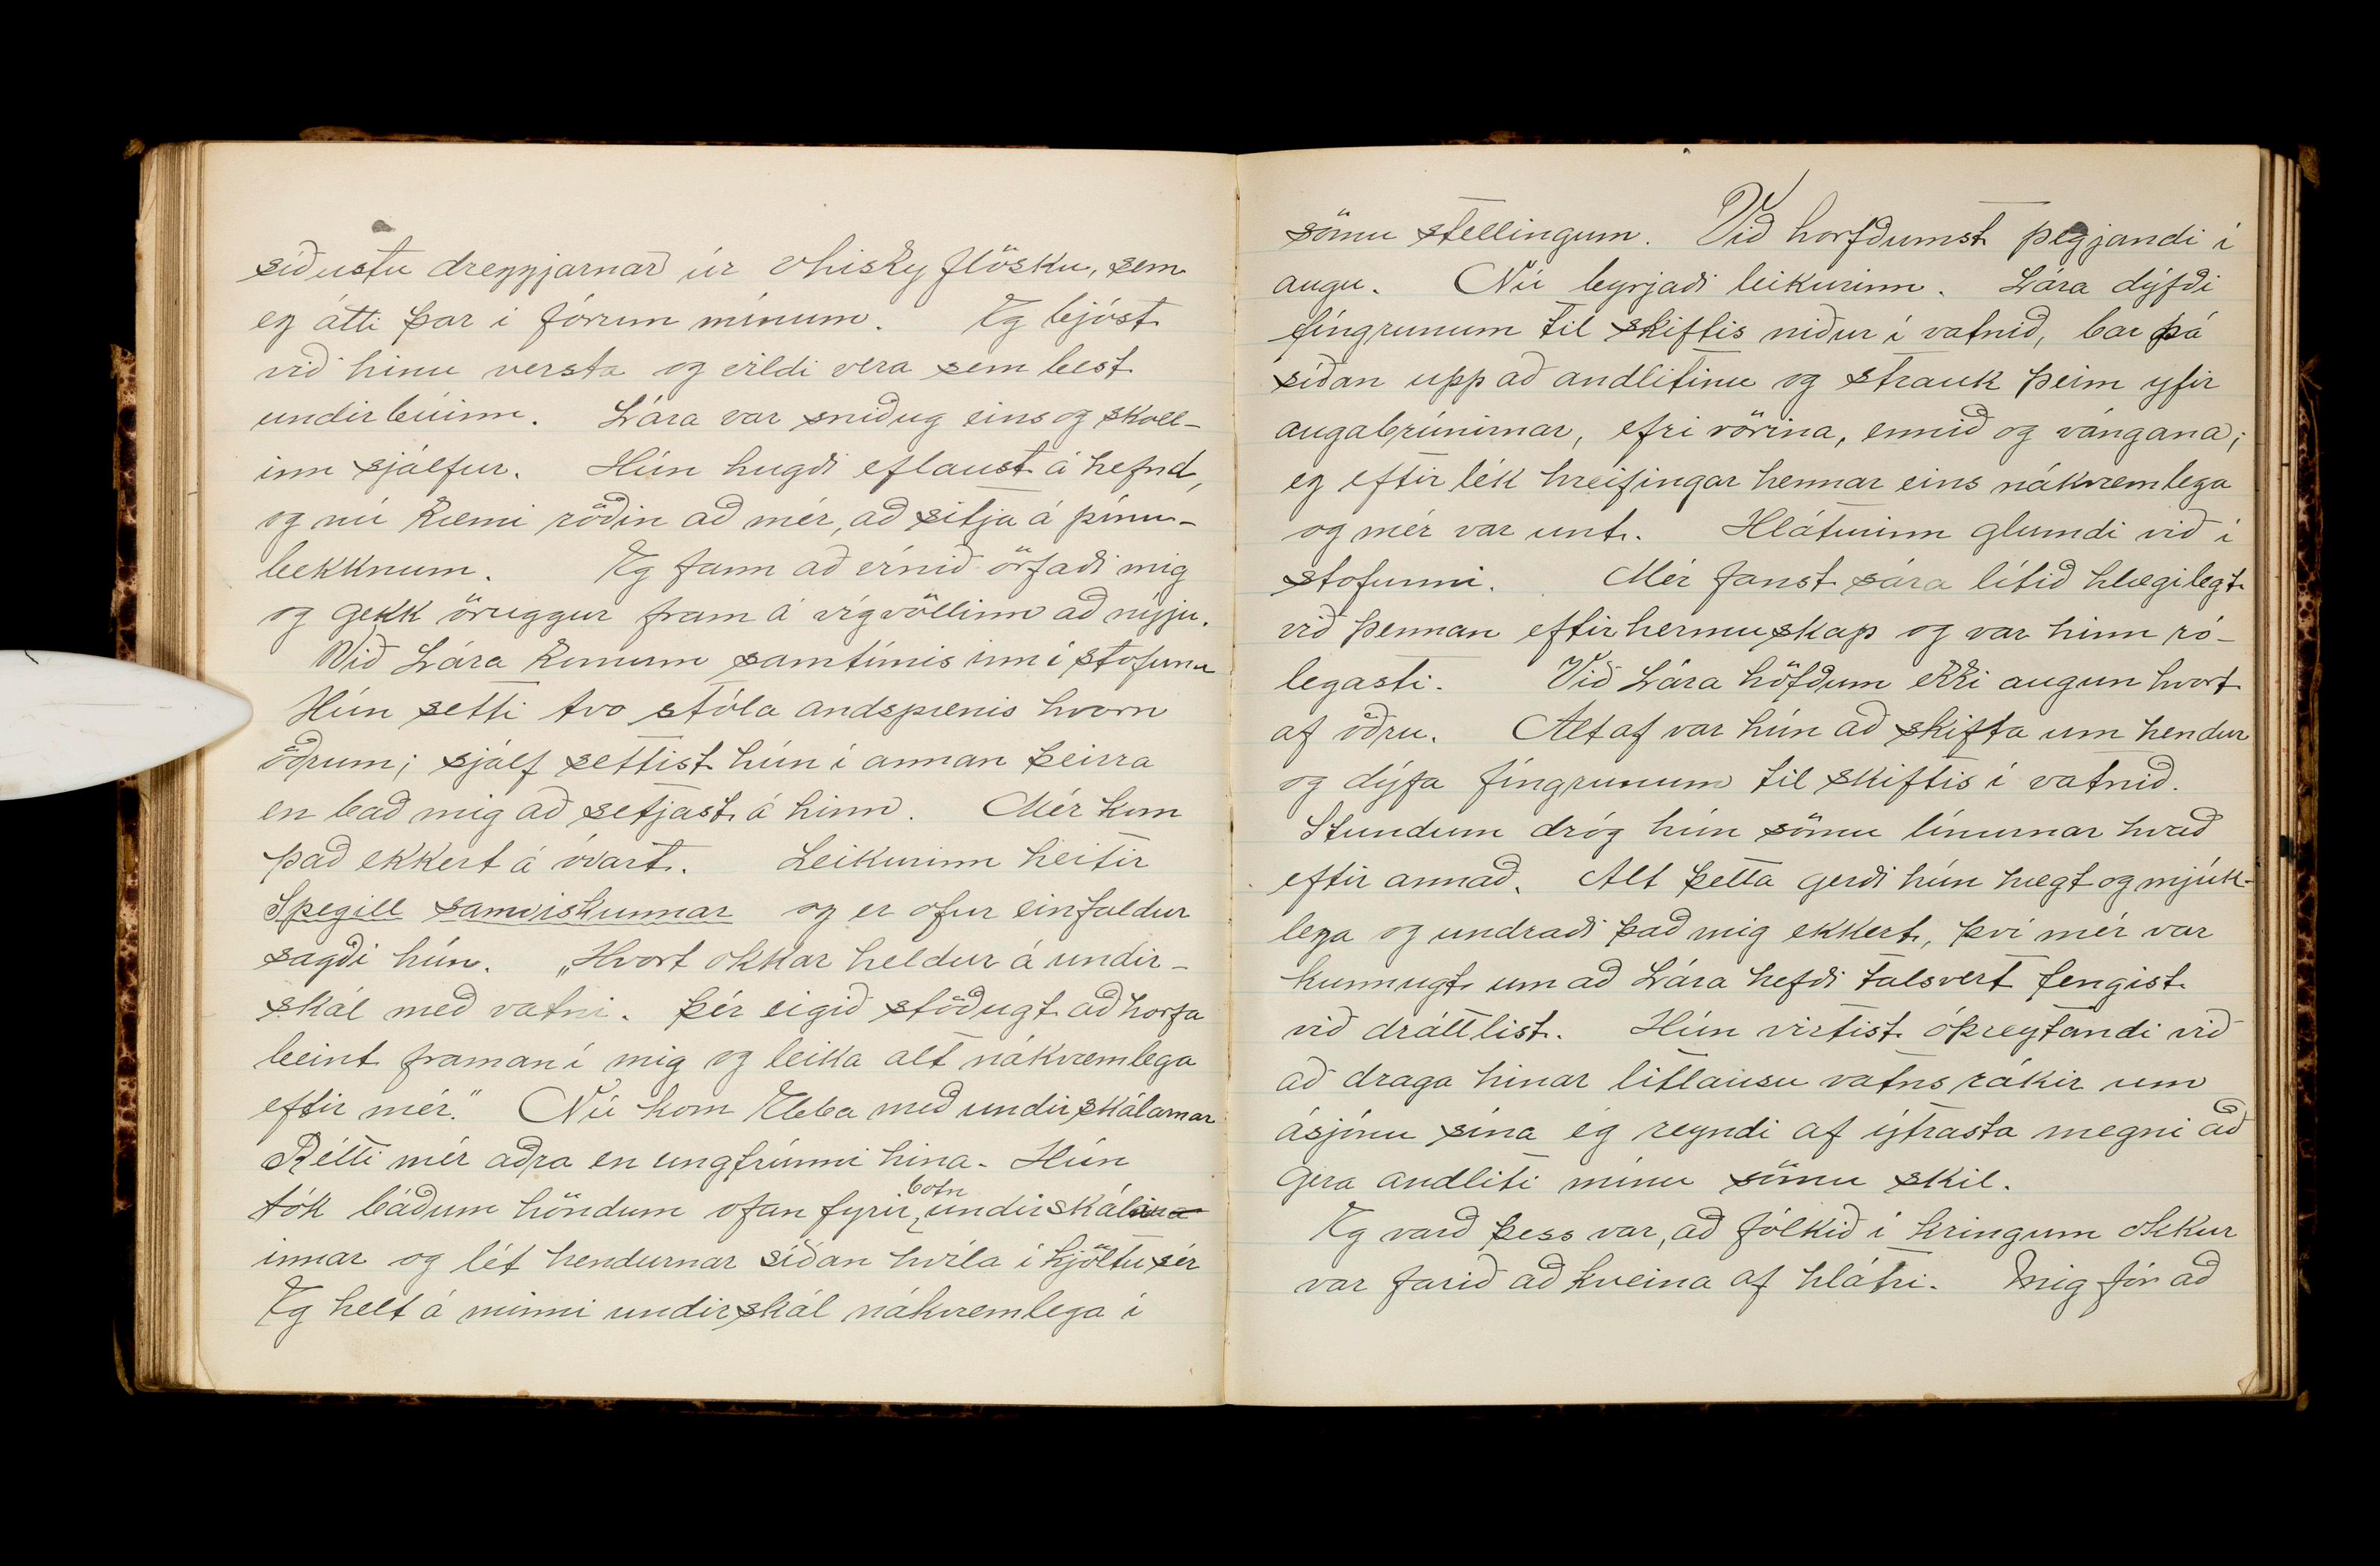 síðustu dreggjarnar úr Whisky flösku, sem
eg átti þar í fórum mínum. Eg bjóst
við hinu versta og vildi vera sem best
undirbúinn. Lára var sniðug eins og skoll-
inn sjálfur. Hún hugði eflaust á hefnd,
og nú kæmi röðin að mér, að sitja á pínu-
bekknum. Eg fann að vínið örfaði mig
og gekk öruggur fram á vígvöllinn að nýju.
Við Lára komum samtímis inn í stofuna
Hún setti tvo stóla andspænis hvorn
öðrum; sjálf settist hún í annan þeirra
en bað mig að setjast á hinn. Mér kom
það ekkert á óvart. Leikurinn heitir
Spegill samviskunnar og er ofur einfaldur
sagði hún. „Hvort okkar heldur á undir-
skál með vatni. Þér eigið stöðugt að horfa
beint framan í mig og leika alt nákvæmlega
eftir mér." Nú kom Ebba með undirskálarnar
Rétti mér aðra en ungfrúnni hina. Hún
tók báðum höndum ofan fyrir botn undirskálarina
innar og lét hendurnar síðan hvíla í kjöltu sér
Eg helt á minni undirskál nákvæmlega í
sömu stellingum. Við horfðumst þegjandi í
augu. Nú byrjaði leikurinn. Lára dýfði
fíngrunum til skiftis niður í vatnið, bar þá
síðan upp að andlitinu og strauk þeim yfir
augabrúnirnar, efri vörina, ennið og vángana;
eg eftir lék hreifingar hennar eins nákvæmlega
og mér var unt. Hláturinn glumdi við í
stofunni. Mér fanst sára lítið hlægilegt
við þennan eftirhermuskap og var hinn ró-
legasti. Við Lára höfðum ekki augun hvort
af öðru. Altaf var hún að skifta um hendur
og dýfa fíngrunum til skiftis í vatnið.
Stundum dróg hún sömu línurnar hvað
eftir annað. Alt þetta gerði hún hægt og mjúk-
lega og undraði það mig ekkert, því mér var
kunnugt um að Lára hefði talsvert fengist
við dráttlist. Hún virtist óþreytandi við
að draga hinar litlausu vatns rákir um
ásjónu sína eg reyndi af ýtrasta megni að
gera andliti mínu sömu skil.
Eg varð þess var, að fólkið í kringum okkur
var farið að kveina af hlátri. Mig fór að